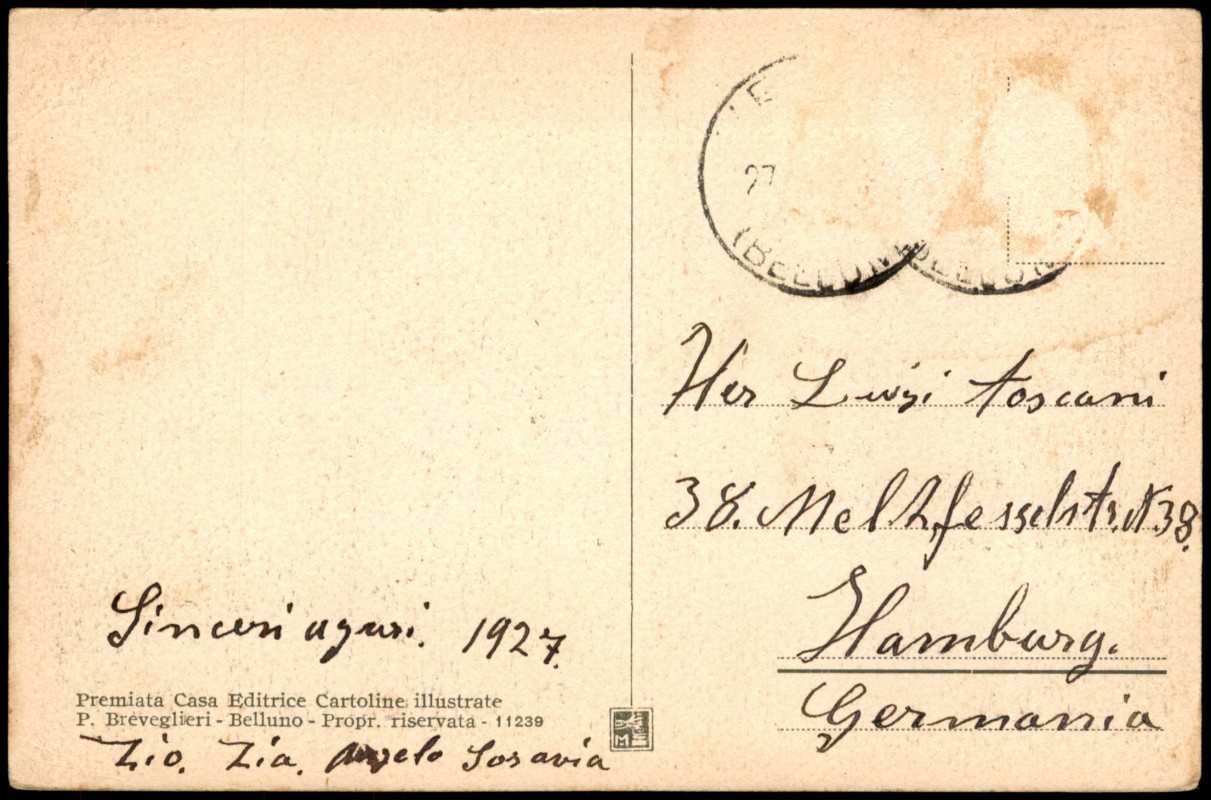 27
(BELLUN
BELLUN
Her Luigi Toscani
38. Melhfesselstr. N 38.
Hamburg.
Germania
Sinceri auguri. 1927.
Premiata Casa Editrice Cartoline illustrate
P. Breveglieri - Belluno - Propr. riservata - 11239
Zio. Zia. Angelo Soravia